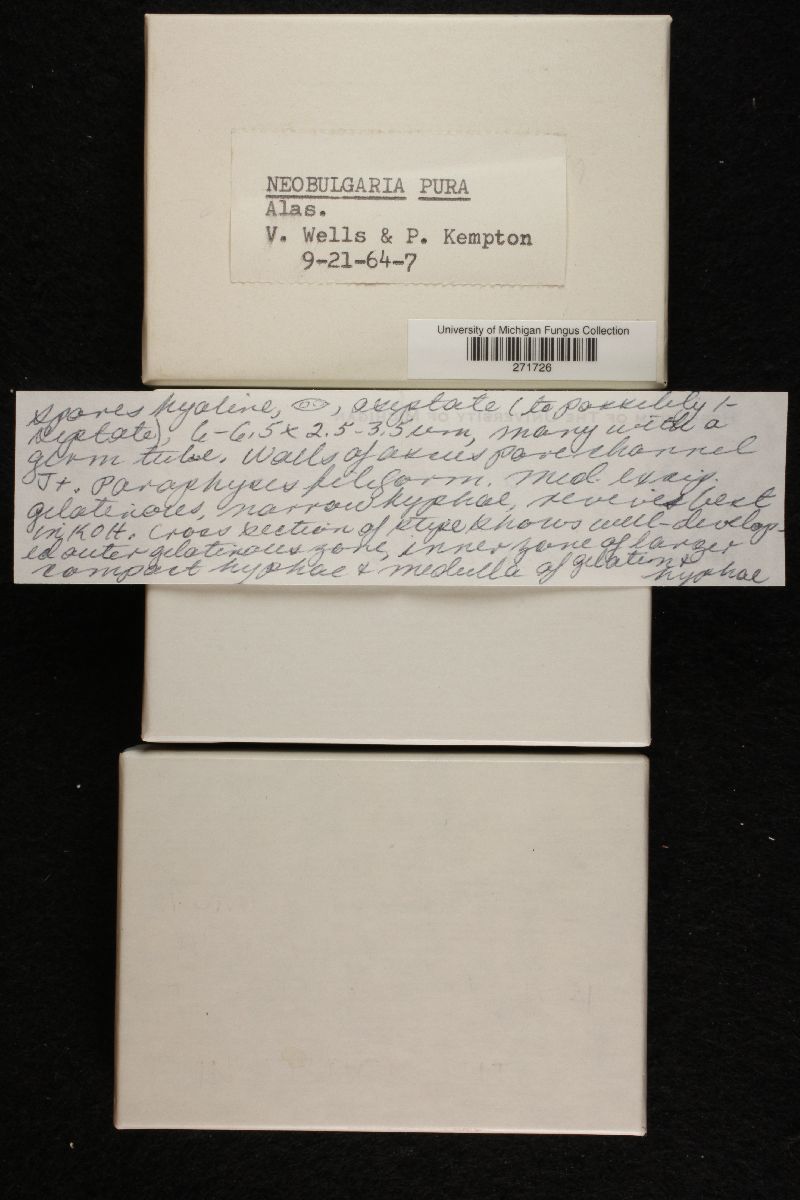 NEOBULGARIA PURA
Alas.
V. Wells & P. Kempton
9-21-64-7
University of Michigan Fungus Collection
271726
spores hyaline, , aseptate (to possibly 1-
septate), 6-6.5 x 2.5-3.5 um, many with a
germ tube. Walls of ascus pore channel
J+. Paraphyses filiform. Med. excip.
gelatinous, narrow hyphae, revives best
in KOH. Cross section of stipe shows well-develop-
ed outer gelatinous zone, inner zone of larger
compact hyphae & medulla of
hyphae